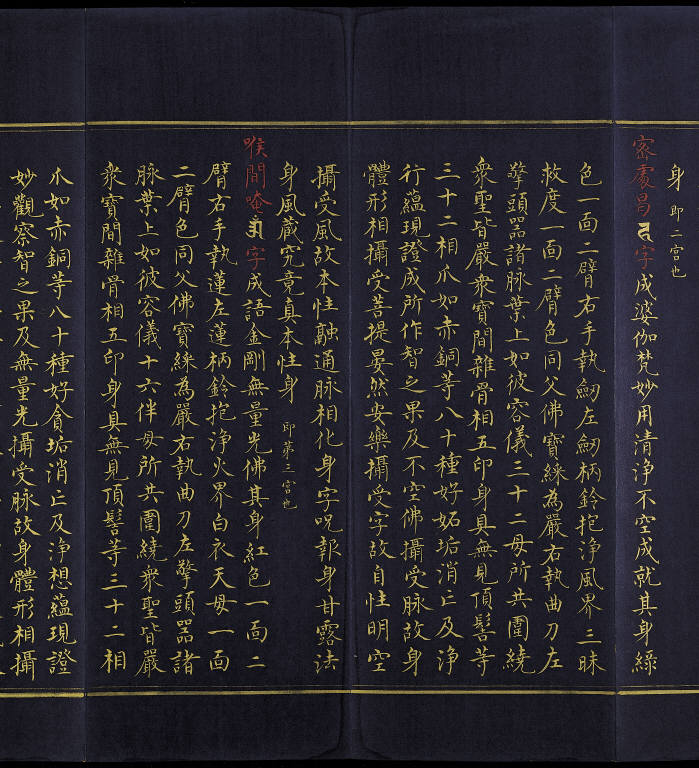 身 即二宮也
密處昌字成婆伽梵妙用清淨不空成就其身綠
色一面二臂右手執劒左劒柄鈴抱淨風界三昧
救度一面二臂色同父佛寶綵為嚴右執曲刀左
擎頭器諸脉葉上如彼容儀三十二母所共圍繞
衆聖皆嚴衆寶間雜骨相五印身具無見頂髻等
三十二相爪如赤銅等八十種好妬垢消亡及淨
行蘊現證成所作智之果及不空佛攝受脉故身
體形相攝受菩提晏然安樂攝受字故自性明空
攝受風故本性融通脉相化身字呪報身甘露法
身風藏究竟真本性身 即第三宮也
喉間唵字成語金剛無量光佛其身紅色一面二
臂右手執蓮左蓮柄鈴抱淨火界白衣天母一面
二臂色同父佛寶綵為嚴右執曲刀左擎頭器諸
脉葉上如彼容儀十六伴母所共圍繞衆聖皆嚴
衆寶間雜骨相五印身具無見頂髻等三十二相
爪如赤銅等八十種好貪垢消亡及淨想蘊現證
妙觀察智之果及無量光攝受脉故身體形相攝